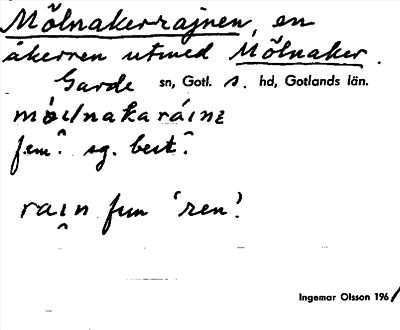 Mölnakerrajnen, en
åkerren utmed Mölnaker.
Garde sn, Gotl. s. hd, Gotlands län.
fem? sg. best?
rain fem 'ren'.
Ingemar Olsson 1961